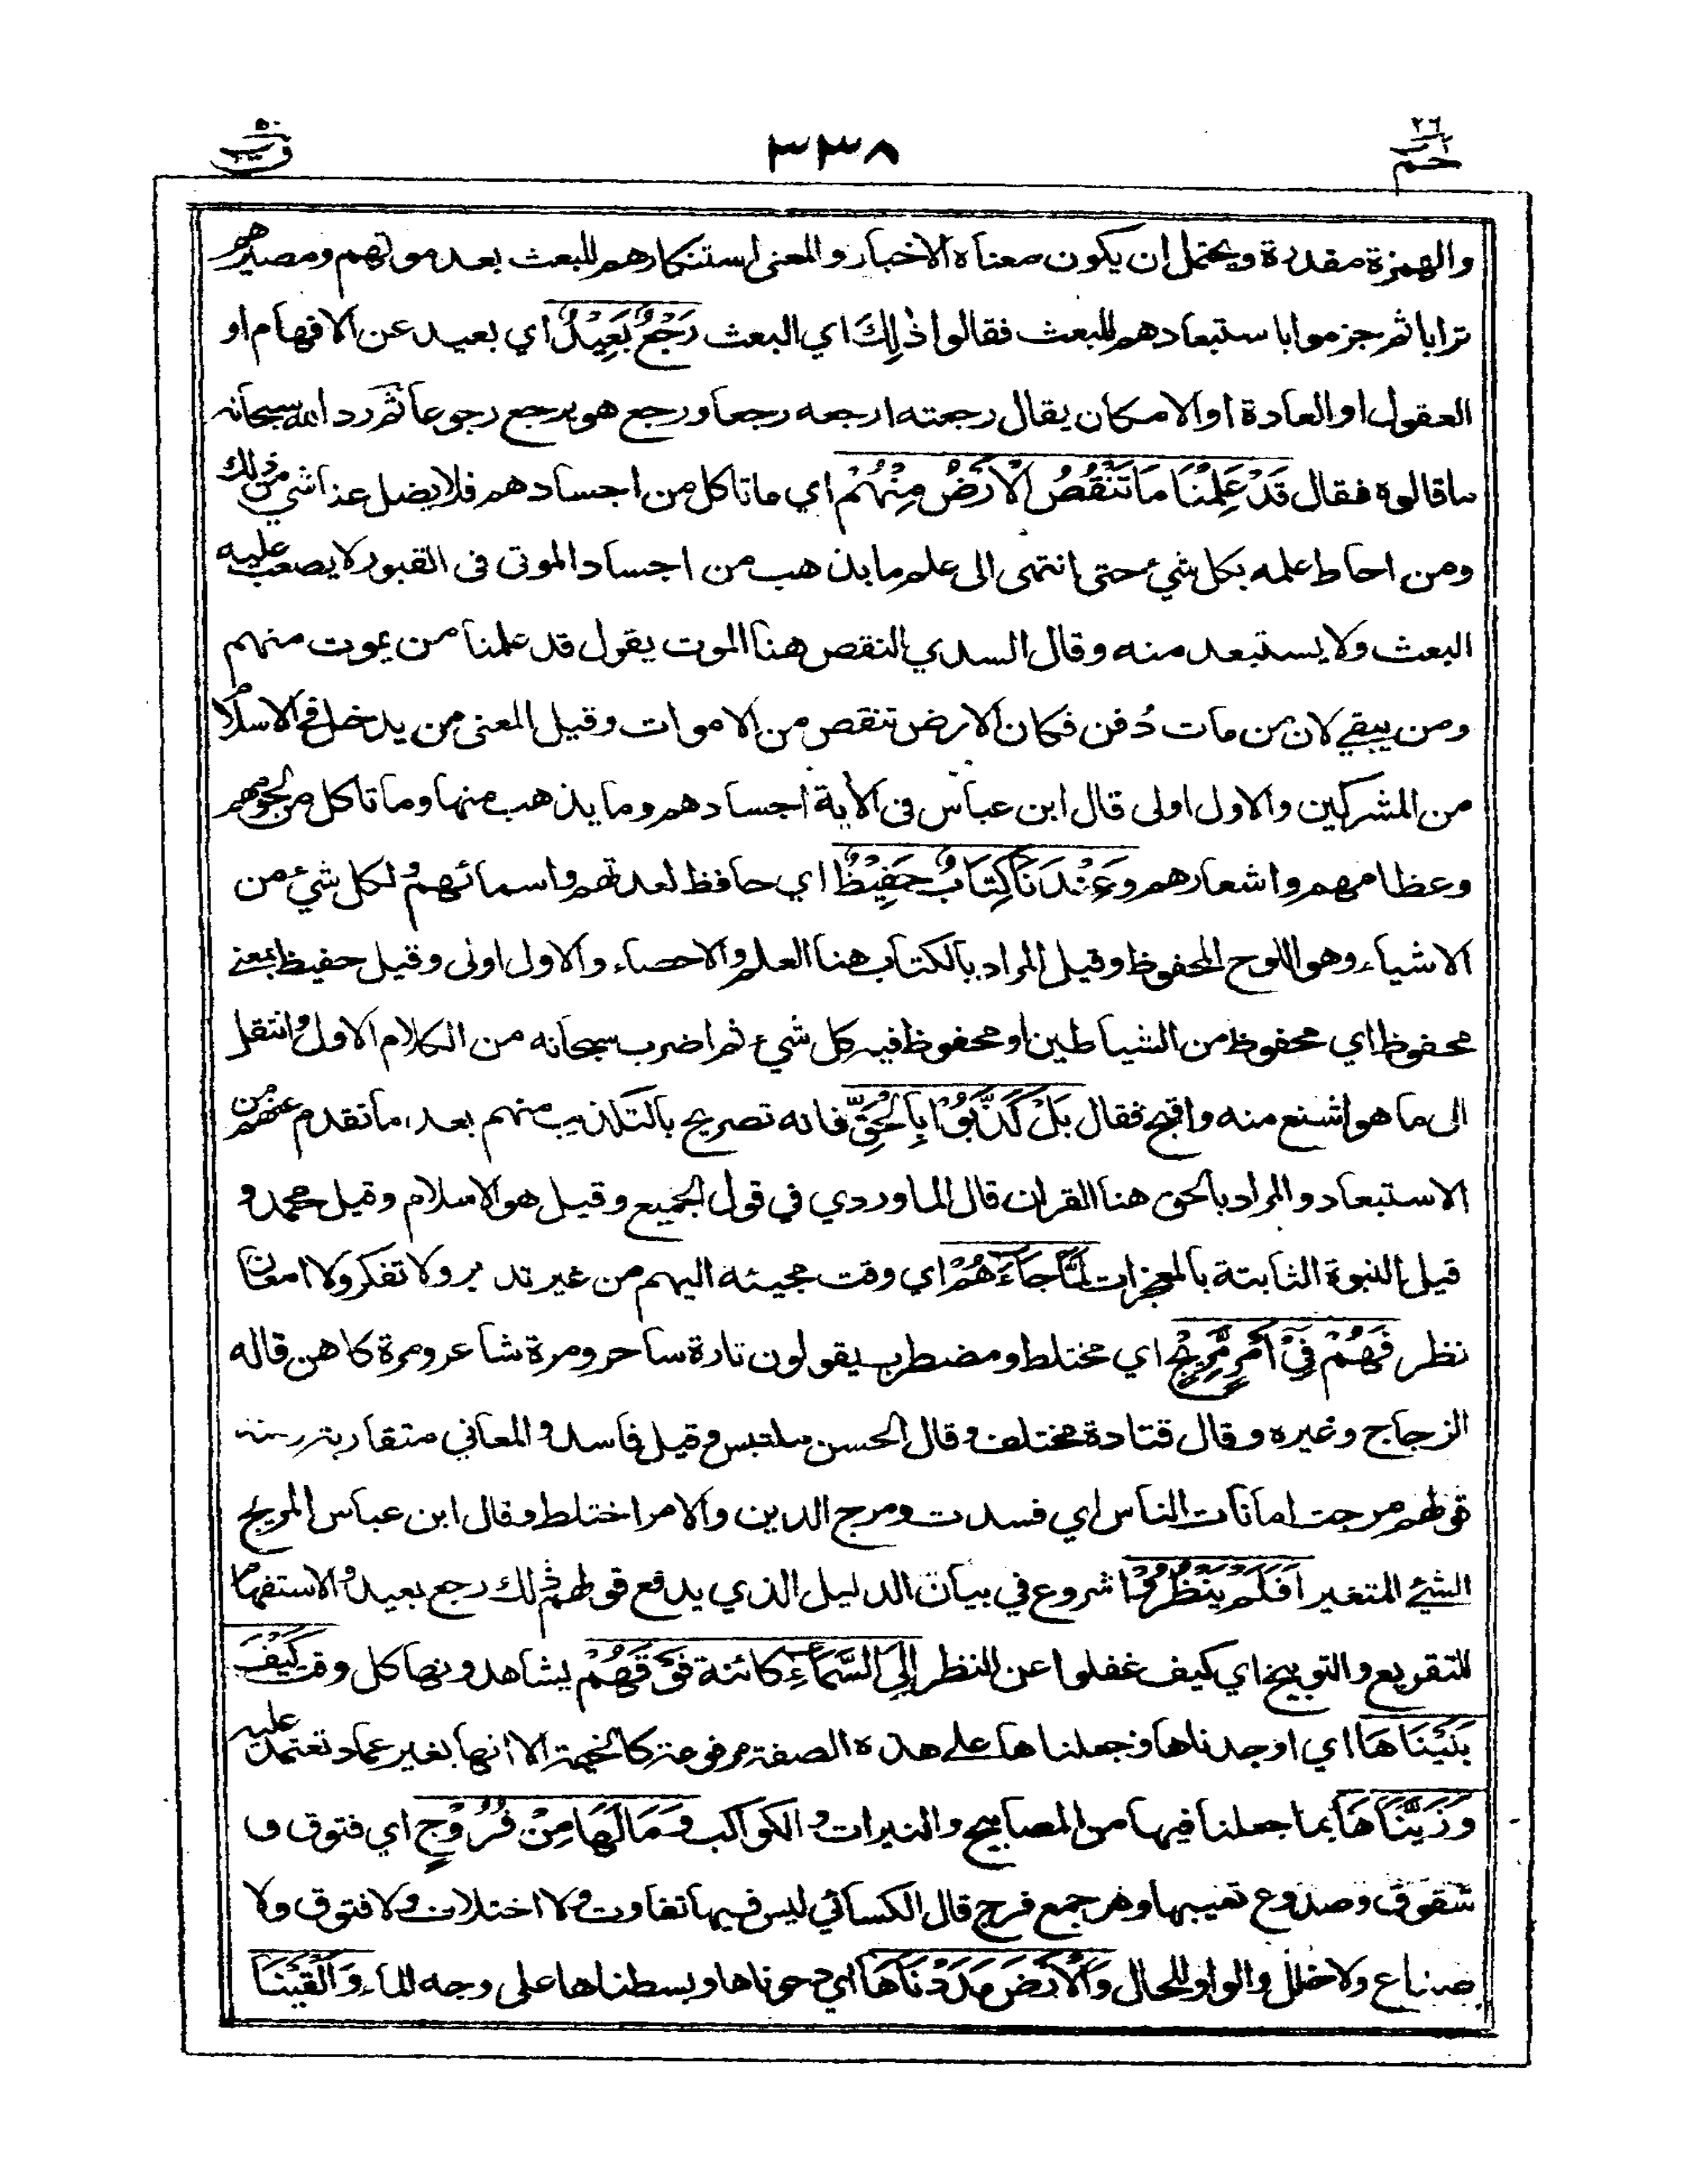 ٢٦ حم
٣٣٨
ق ٥٠
والهمزة مقدرة ويحتمل ان يكون معناه الاخبار والمعنى استنكارهم للبعث بعد موتهم ومصيرهم
ترابا ثم جزموا باستبعادهم للبعث فقالوا ذٰلِكَ اي البعث رَجْعٌ بَعِيْدٌ اي بعيد عن الافهام او
العقول او العادة او الامكان يقال رجعته ارجعه رجعا ورجع هو يرجع رجوعا ثم رد الله سبحانه
ما قالوه فقال قَدْ عَلِمْنَا مَا تَنْقُصُ الْاَرْضُ مِنْهُمْ اي ما تاكل من اجسادهم فلا يضل عنا شيء من ذلك
ومن احاط علمه بكل شيء حتى انتهى الى علم ما يذهب من اجساد الموتى فى القبور لا يصعب عليه
البعث ولا يستبعد منه وقال السدي النقص هنا الموت يقول قد علمنا من يموت منهم
ومن يبقي لان من مات دُفن فكان الارض تنقص من الاموات وقيل المعنى من يدخل في الاسلام
من المشركين والاول اولى قال ابن عباس فى الأية اجسادهم وما يذهب منها وما تأكل من لحومهم
وعظامهم واشعارهم وَعِنْدَنَا كِتَابٌ حَفِيْظٌ اي حافظ لعدتهم واسمائهم ولكل شيء من
الاشياء وهو اللوح المحفوظ وقيل المراد بالكتاب هنا العلم والاحصاء والاول اولى وقيل حفيظ بمعنے
محفوظ اي محفوظ من الشياطين او محفوظ فيه كل شيء ثم اضرب سبحانه من الكلام الاول وانتقل
الى ما هو اشنع منه واقبح فقال بَلْ كَذَّبُوْا بِالْحَقِّ فانه تصريح بالتكذيب منهم بعد ما تقدم عنهم من
الاستبعاد والمراد بالحق هنا القران قال الماوردي في قول الجميع وقيل هو الاسلام وقيل محمد و
قيل النبوة الثابتة بالمعجزات لَمَّا جَاءَهُمْ اي وقت مجيئه اليهم من غير تدبر ولا تفكر ولا امعان
نظر فَهُمْ فِيْ اَمْرٍ مَّرِيْجٍ اي مختلط ومضطرب يقولون تارة ساحر ومرة شاعر ومرة كاهن قاله
الزجاج وغيره وقال قتادة مختلف وقال الحسن ملتبس وقيل فاسد والمعاني متقاربة ومنه
قولهم مرجت امانات الناس اي فسدت ومرج الدين والامر اختلط وقال ابن عباس المريج
الشيء المتغير اَفَلَمْ يَنْظُرُوْا شروع في بيان الدليل الذي يدفع قولهم ذلك رجع بعيد والاستفهام
للتقريع والتوبيخ اي كيف غفلوا عن النظر اِلَى السَّمَاءِ كائنة فَوْقَهُمْ يشاهدونها كل وقت كَيْفَ
بَنَيْنَاهَا اي اوجدناها وجعلناها على هذه الصفة مرفوعة كالخيمة الا انها بغير عماد تعتمد عليه
وَزَيَّنَّاهَا بما جعلنا فيها من المصابيح والنيرات والكواكب وَمَا لَهَا مِنْ فُرُوْجٍ اي فتوق و
شقوق وصدوع تعيبها وهر جمع فرج قال الكسائي ليس فيها تفاوت ولا اختلاف ولا فتوق ولا
صداع ولا خلل والواو للحال وَالْاَرْضَ مَدَدْنَاهَا اي دحوناها وبسطناها على وجه الماء وَاَلْقَيْنَا